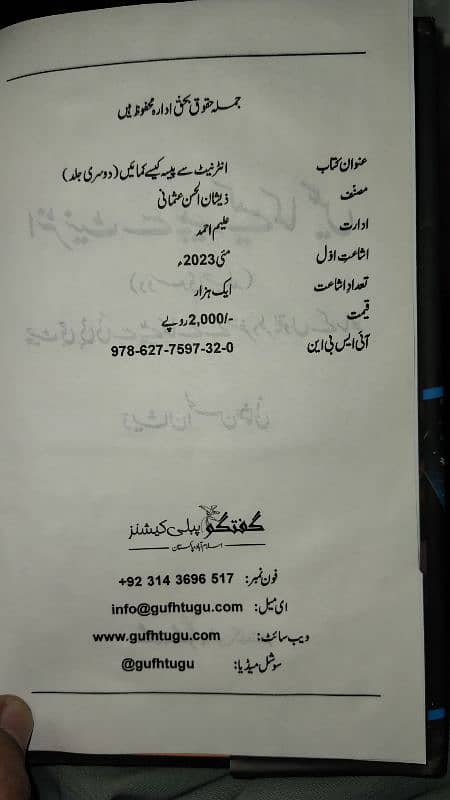 جملہ حقوق بحق ادارہ محفوظ ہیں
عنوان کتاب انٹرنیٹ سے پیسہ کیسے کمائیں (دوسری جلد)
مصنف ذیشان الحسن عثمانی
ادارت علیم احمد
اشاعتِ اوّل مئی 2023ء
تعدادِ اشاعت ایک ہزار
قیمت 2,000/- روپے
آئی ایس بی این 978-627-7597-32-0
گفتگو پبلی کیشنز
اسلام آباد، پاکستان
فون نمبر: +92 314 3696 517
ای میل: info@gufhtugu.com
ویب سائٹ: www.gufhtugu.com
سوشل میڈیا: @gufhtugu